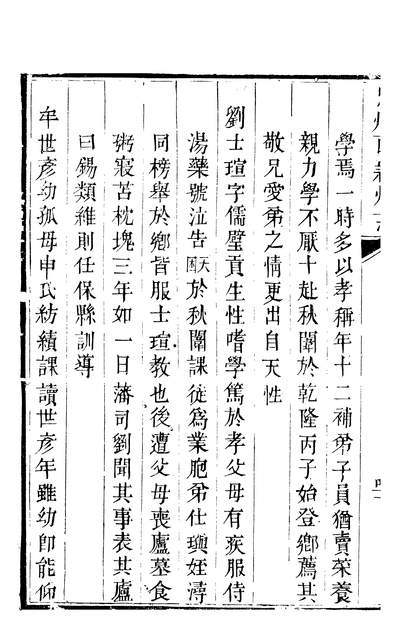 學焉一時多以孝稱年十二補弟子員猶賣菜養
親力學不厭十赴秋闈於乾隆丙子始登鄉薦其
敬兄愛弟之情更出自天性
劉士瑄字儒璧貢生性嗜學篤於孝父母有疾服侍
湯藥號泣告天困於秋闈課徒爲業胞弟仕璵姪潯
同榜舉於鄉皆服士瑄教也後遭父母喪廬墓食
粥寢苫枕塊三年如一日藩司劉聞其事表其廬
曰錫類維則任保縣訓導
牟世彥幼孤母申氏紡績課讀世彥年雖幼即能仰